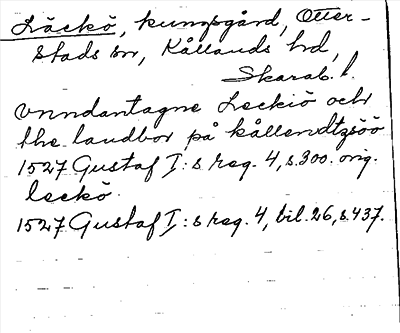 Läckö, kungsgård, Otter-
stads sn, Kållands hd,
Skarab. l.
vnndantagne Leckiö och
the landbor på kållendtzsöö
1527 Gustaf I:s reg. 4, s. 300. orig.
leckö.
1527 Gustaf I:s reg. 4, bil. 26, s. 437.